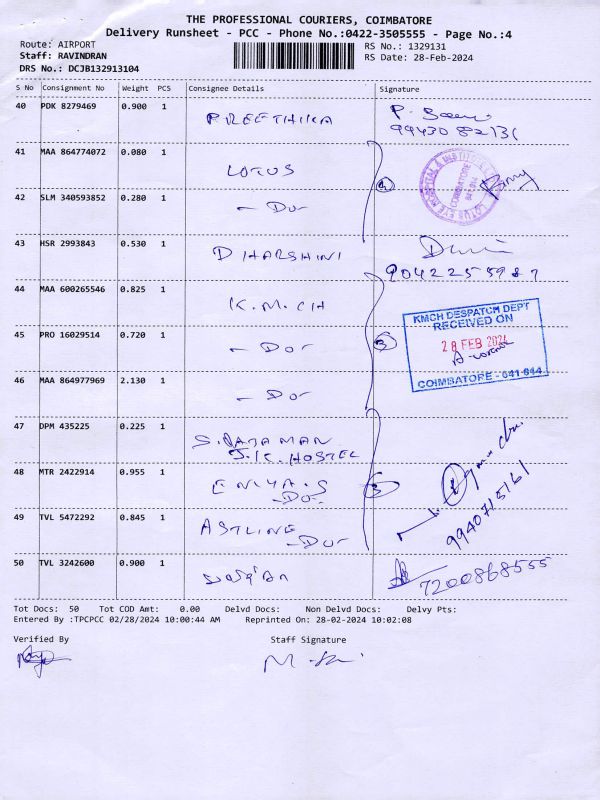 THE PROFESSIONAL COURIERS, COIMBATORE
Delivery Runsheet - PCC - Phone No.:0422-3505555 - Page No.:4
Route: AIRPORT
RS No.: 1329131
Staff: RAVINDRAN
RS Date: 28-Feb-2024
DRS No.: DCJB132913104
S No Consignment No Weight PCS Consignee Details Signature
40 PDK 8279469 0.900 1 PREETHIKA P.
9943082131
41 MAA 864774072 0.080 1 LOTUS
LOTUS EYE HOSPITAL & INSTITUTE COIMBATORE 641 014
42 SLM 340593852 0.280 1 - Do-
43 HSR 2993843 0.530 1 DHARSHINI
9042255987
44 MAA 600265546 0.825 1 K.M.CH
KMCH DESPATCH DEPT
RECEIVED ON
28 FEB 2024
COIMBATORE - 641 014
45 PRO 16029514 0.720 1 - Do- 3
46 MAA 864977969 2.130 1 - Do-
47 DPM 435225 0.225 1
J.K. HOSTEL
48 MTR 2422914 0.955 1 ENIYA.S
-Do-
9940715161
49 TVL 5472292 0.845 1 ASTLINE
-Do-
50 TVL 3242600 0.900 1
7200868555
Tot Docs: 50 Tot COD Amt: 0.00 Delvd Docs: Non Delvd Docs: Delvy Pts:
Entered By :TPCPCC 02/28/2024 10:00:44 AM Reprinted On: 28-02-2024 10:02:08
Verified By Staff Signature